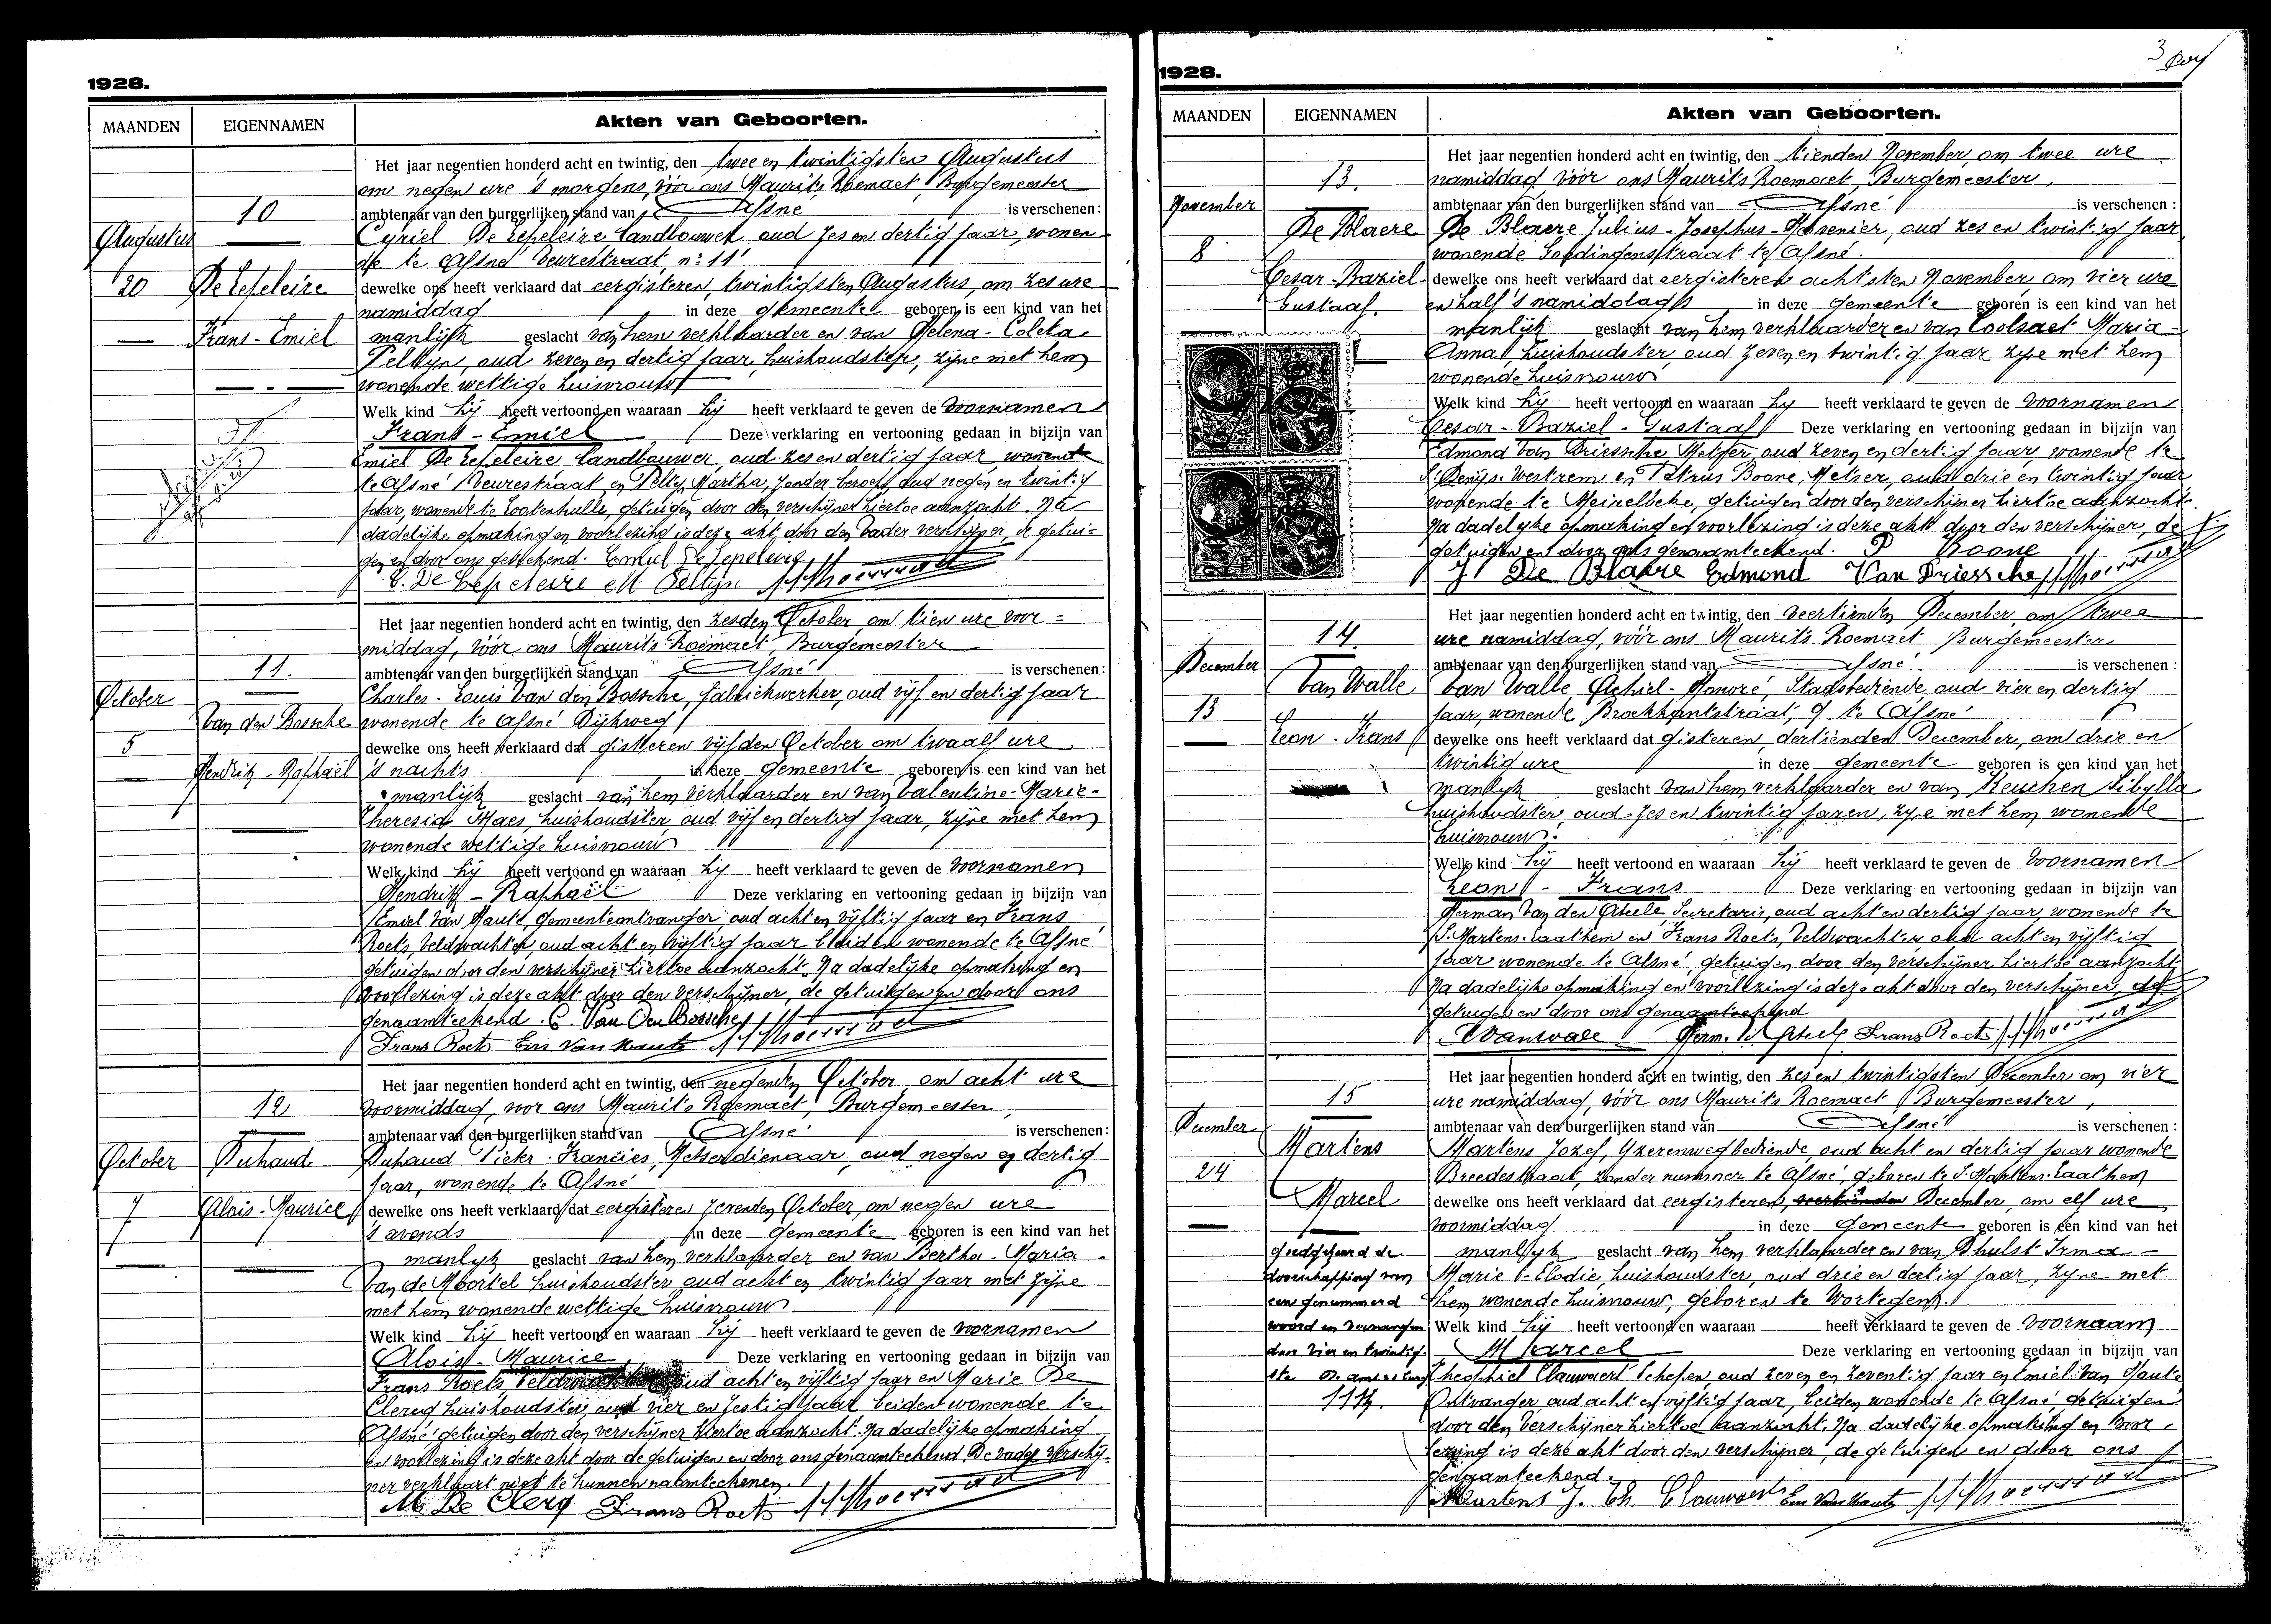 1928.
MAANDEN
EIGENNAMEN
Akten van Geboorten.
10
Augustus
20
De Lepeleire
Frans - Emiel
Het jaar negentien honderd acht en twintig, den twee en twintigsten Augustus
om negen ure 's morgens, vóór ons Maurits Roemaet, Burgemeester
ambtenaar van den burgerlijken stand van Afsné is verschenen :
Cyriel De Lepeleire landbouwer, oud zes en dertig jaar, wonen-
de te Afsné Veurestraat n: 11
dewelke ons heeft verklaard dat eergisteren, twintigsten Augustus, om zes ure
namiddag in deze gemeente geboren is een kind van het
manlijk geslacht van hem verklaarder en van Helena - Coleta
Peltijn, oud zeven en dertig jaar, huishoudster, zijne met hem
wonende wettige huisvrouw
Welk kind hij heeft vertoond en waaraan hij heeft verklaard te geven de voornamen
Frans - Emiel Deze verklaring en vertooning gedaan in bijzijn van
Emiel De Lepeleire landbouwer, oud zes en dertig jaar, wonende
te Afsné Veurestraat en Peltijn Martha, zonder beroep, oud negen en twintig
jaar, wonende te Lootenhulle, getuigen door den verschijner hiertoe aanzocht. Na
dadelijke opmaking en voorlezing is deze akt door den vader verschijner, de getui-
gen en door ons geteekend. Emiel De Lepeleire
C. De Lepeleire M Peltijn
11.
October
Van den Bossche
5
Hendrik - Raphaël
Het jaar negentien honderd acht en twintig, den zesden October, om tien ure voor =
middag, vóór ons Maurits Roemaet, Burgemeester
ambtenaar van den burgerlijken stand van Afsné is verschenen :
Charles - Louis Van den Bossche, fabriekwerker, oud vijf en dertig jaar
wonende te Afsné Dijkweg
dewelke ons heeft verklaard dat gisteren vijfden October om twaalf ure
's nachts in deze gemeente geboren is een kind van het
manlijk geslacht van hem verklaarder en van Valentine - Marie -
Theresia Maes, huishoudster oud vijf en dertig jaar, zijne met hem
wonende wettige huisvrouw
Welk kind hij heeft vertoond en waaraan hij heeft verklaard te geven de voornamen
Hendrik - Raphaël Deze verklaring en vertooning gedaan in bijzijn van
Emiel Van Haute, Gemeenteontvanger, oud acht en vijftig jaar en Frans
Roets, Veldwachter, oud acht en vijftig jaar beiden wonende te Afsné
getuigen door den verschijner hiertoe aanzocht. Na dadelijke opmaking en
voorlezing is deze akt door den verschijner, de getuigen en door ons
genaamteekend. C. Van Den Bossche
Frans Roets Em. Van Haute
12
October
Duhaud
7
Alois - Maurice
Het jaar negentien honderd acht en twintig, den negenden October, om acht ure
voormiddag, voor ons Maurits Roemaet, Burgemeester,
ambtenaar van den burgerlijken stand van Afsné is verschenen :
Duhaud Pieter - Francies, Metserdienaar, oud negen en dertig
jaar, wonende te Afsné
dewelke ons heeft verklaard dat eergisteren zevenden October, om negen ure
's avonds in deze gemeente geboren is een kind van het
manlijk geslacht van hem verklaarder en van Bertha - Maria -
Van de Moortel huishoudster oud acht en twintig jaar met zijne
met hem wonende wettige huisvrouw.
Welk kind hij heeft vertoond en waaraan hij heeft verklaard te geven de voornamen
Alois - Maurice Deze verklaring en vertooning gedaan in bijzijn van
Frans Roets, oud acht en vijftig jaar en Marie De
Clercq huishoudster oud vier en zestig jaar beiden wonende te
Afsné getuigen door den verschijner hiertoe aanzocht. Na dadelijke opmaking
en voorlezing is deze akt door de getuigen en door ons genaamteekend. De vader verschij-
ner verklaart niet te kunnen naamteekenen.
M. De Clerq Frans Roets
1928.
MAANDEN
EIGENNAMEN
Akten van Geboorten.
13.
November
De Blaere
8
Cesar - Baziel -
Gustaaf.
Het jaar negentien honderd acht en twintig, den tienden November, om twee ure
namiddag, vóór ons Maurits Roemaet, Burgemeester,
ambtenaar van den burgerlijken stand van Afsné is verschenen :
De Blaere Julius - Josephus - Hovenier, oud zes en twintig jaar
wonende Goedingenstraat te Afsné.
dewelke ons heeft verklaard dat eergisteren achtsten November om vier ure
en half 's namiddags in deze gemeente geboren is een kind van het
manlijk geslacht van hem verklaarder en van Coolsaet Maria -
Anna, huishoudster, oud zeven en twintig jaar zijne met hem
wonende huisvrouw
Welk kind hij heeft vertoond en waaraan hy heeft verklaard te geven de voornamen
Cesar - Baziel - Gustaaf Deze verklaring en vertooning gedaan in bijzijn van
Edmond Van Driessche Metser, oud zeven en dertig jaar, wonende te
St Denijs-Westrem en Petrus Boone, Metser, oud drie en twintig jaar
wonende te Meirelbeke, getuigen door den verschijner hiertoe aanzocht.
Na dadelyke opmaking en voorlezing is deze akt door den verschijner, de
getuigen en door ons genaamteekend. P Boone
J De Blaere Edmond Van Driessche
14.
December
Van Walle
13
Leon - Frans
Het jaar negentien honderd acht en twintig, den veertienden December, om twee
ure namiddag, vóór ons Maurits Roemaet, Burgemeester
ambtenaar van den burgerlijken stand van Afsné is verschenen :
Van Walle, Achiel - Honoré, Staatsbediende oud vier en dertig
jaar, wonende Broekkantstraat, 9 te Afsné
dewelke ons heeft verklaard dat gisteren, dertienden December, om drie en
twintig ure in deze gemeente geboren is een kind van het
manlyk geslacht van hem verklaarder en van Keuchen Sibylla
huishoudster, oud zes en twintig jaren, zyne met hem wonende
huisvrouw.
Welk kind hij heeft vertoond en waaraan hij heeft verklaard te geven de voornamen
Leon - Frans Deze verklaring en vertooning gedaan in bijzijn van
Herman Van den Abeele, Secretaris, oud acht en dertig jaar, wonende te
S. Martens-Laathem en Frans Roets, Veldwachter, oud acht en vijftig
jaar wonende te Afsné, getuigen door den verschijner hiertoe aanzocht
Na dadelijke opmaking en voorlezing is deze akt door den verschijner, de
getuigen en door ons genaamteekend
Vanwalle Herm. V. Abeele Frans Roets
15
December
Martens
24
Marcel
goedgekeurd de
doorschapping van
een genummerd
woord en vervangen
door vier en twintig-
ste
Het jaar negentien honderd acht en twintig, den zes en twintigsten December om vier
ure namiddag, vóór ons Maurits Roemaet, Burgemeester,
ambtenaar van den burgerlijken stand van Afsné is verschenen :
Martens Jozef, Yzerenwegbediende, oud acht en dertig jaar wonende
Breedestraat, zonder nummer te Afsné, geboren te S-Martens-Laathem
dewelke ons heeft verklaard dat eergisteren, December, om elf ure
voormiddag in deze gemeente geboren is een kind van het
manlyk geslacht van hem verklaarder en van Dhulst Irma -
Marie - Elodie, huishoudster, oud drie en dertig jaar, zyne met
hem wonende huisvrouw, geboren te Wortegem.
Welk kind hij heeft vertoond en waaraan heeft verklaard te geven de voornaam
Marcel Deze verklaring en vertooning gedaan in bijzijn van
Theophiel Clauwaert Schepen oud zeven en zeventig jaar en Emiel Van Haute
Ontvanger oud acht en vijftig jaar, beiden wonende te Afsné, getuigen
door den verschijner hiertoe aanzocht. Na dadelijke opmaking en voor-
lezing is deze akt door den verschijner, de getuigen en door ons
genaamteekend.
Martens J. Th. Clauwaert Em Van Haute